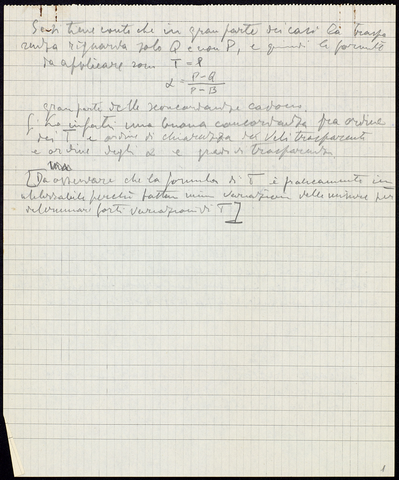 Se si tiene conto che in gran parte dei casi la traspa
renza riguarda solo Q e non P, e quindi le formule
da applicare sono T = P
α = P-Q / P-B
gran parte delle concordanze cadono.
Si ha infatti una buona concordanza fra ordine
dei T e ordine di chiarezza dei veli trasparenti
e ordine degli α e gradi di trasparenza
[Da osservare che la formula di T è praticamente in
utilizzabile perché bastan minime variazioni delle misure per
determinare forti variazioni di T]
1